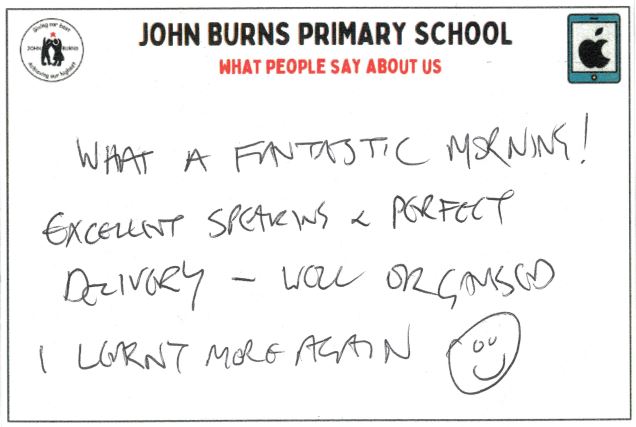 Giving our best
JOHN BURNS
Achieving our highest
JOHN BURNS PRIMARY SCHOOL
WHAT PEOPLE SAY ABOUT US
WHAT A FANTASTIC MORNING!
EXCELLENT SPEAKING & PERFECT
DELIVERY – WELL ORGANISED
I LEARNT MORE AGAIN